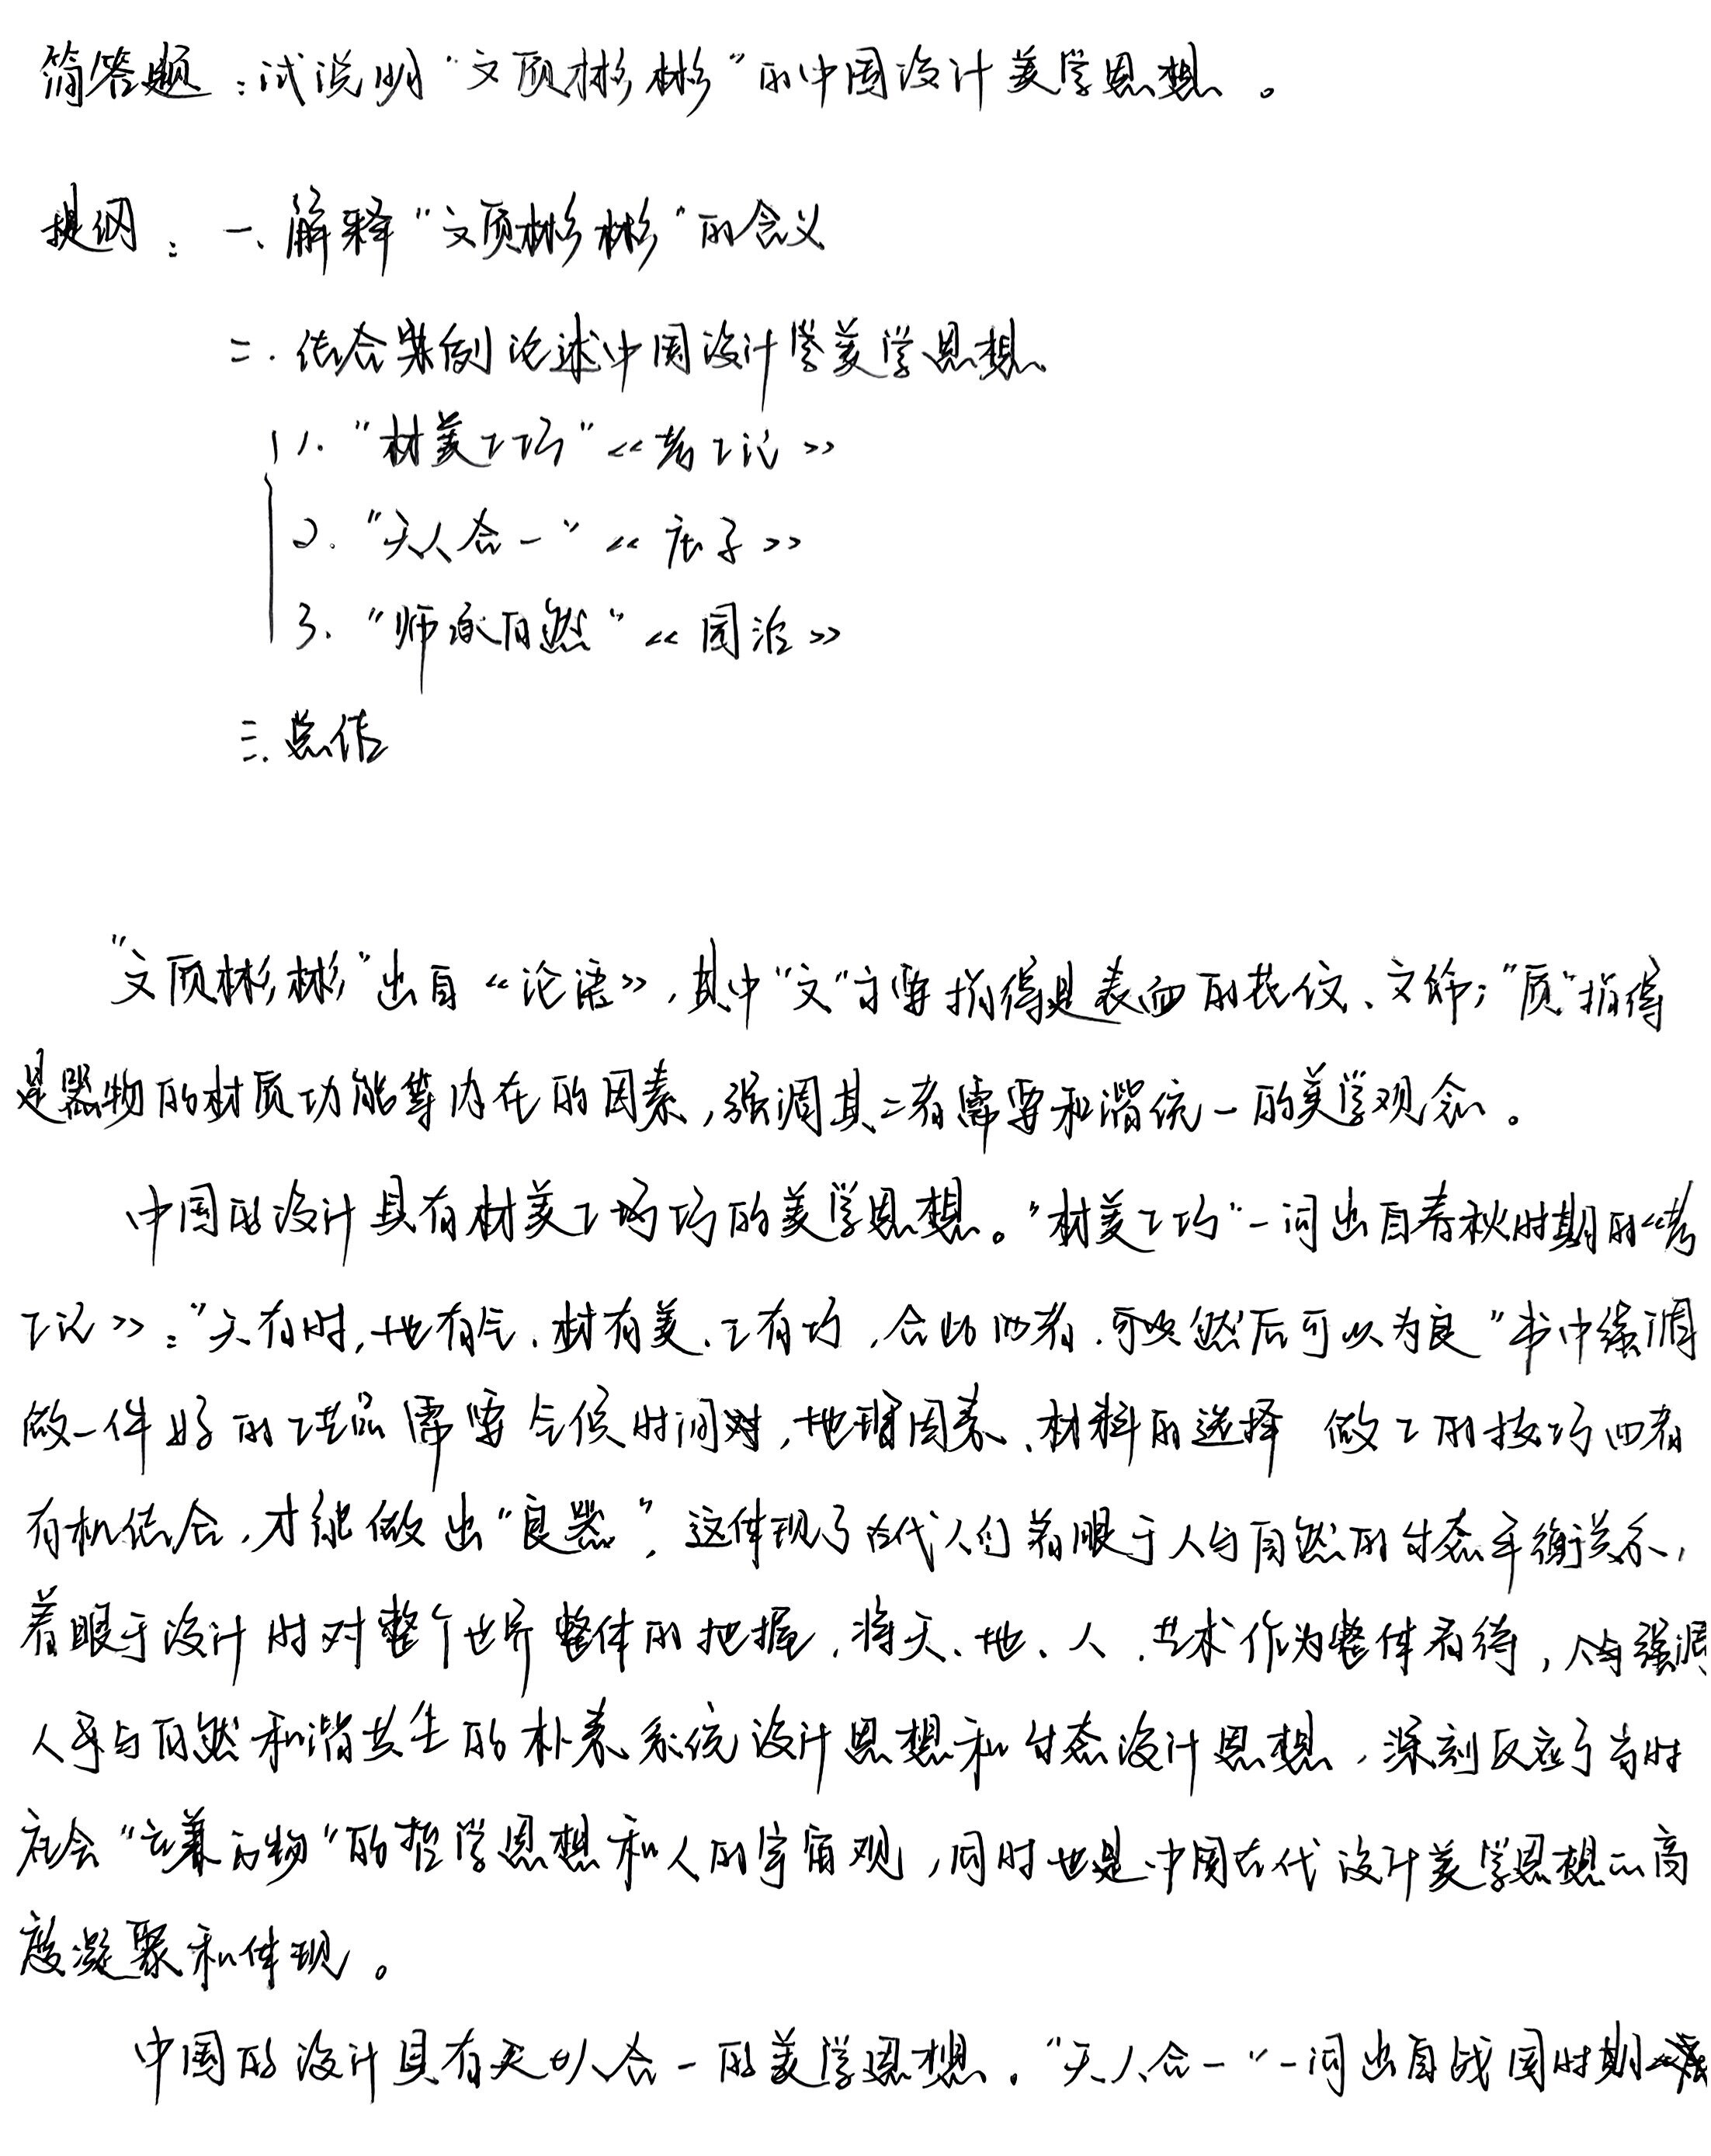 简答题：试说明“文质彬彬”的中国设计美学思想。
提纲：一、解释“文质彬彬”的含义
二.结合案例论述中国设计学美学思想
1.“材美工巧”《考工记》
2.“天人合一”《庄子》
3.“师承自然”《园冶》
三.总结
“文质彬彬”出自《论语》，其中“文”主要指得是表面的花纹、文饰；“质”指得
是器物的材质功能等内在的因素，强调其二者需要和谐统一的美学观念。
中国的设计具有材美工巧的美学思想。“材美工巧”一词出自春秋时期的《考
工记》：“天有时，地有气、材有美、工有巧，合此四者，然后可以为良”书中强调
做一件好的工艺品需要气候时间对，地理因素、材料的选择 做工的技巧四者
有机结合，才能做出“良器”，这体现了古代人们着眼于人与自然的生态平衡关系，
着眼于设计时对整个世界整体的把握，将天、地、人、艺术作为整体看待，强调
人与自然和谐共生的朴素系统设计思想和生态设计思想，深刻反应了当时
社会“兼万物”的哲学思想和人的宇宙观，同时也是中国古代设计美学思想的高
度凝聚和体现。
中国的设计具有天人合一的美学思想。“天人合一”一词出自战国时期